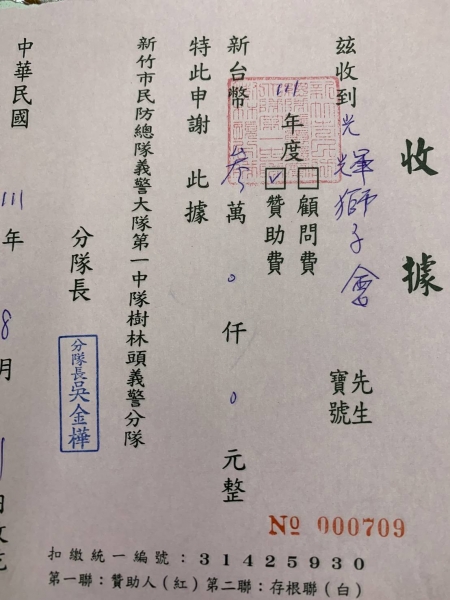 收據
茲收到光輝獅子會 先生 寶號
111年度 □顧問費 ☑贊助費
新台幣 叄萬0仟0元整
特此申謝 此據
新竹市民防總隊義警大隊第一中隊樹林頭義警分隊
分隊長 分隊長吳金樺
中華民國111年8月1日
№ 000709
扣繳統一編號：31425930
第一聯：贊助人(紅)第二聯：存根聯(白)